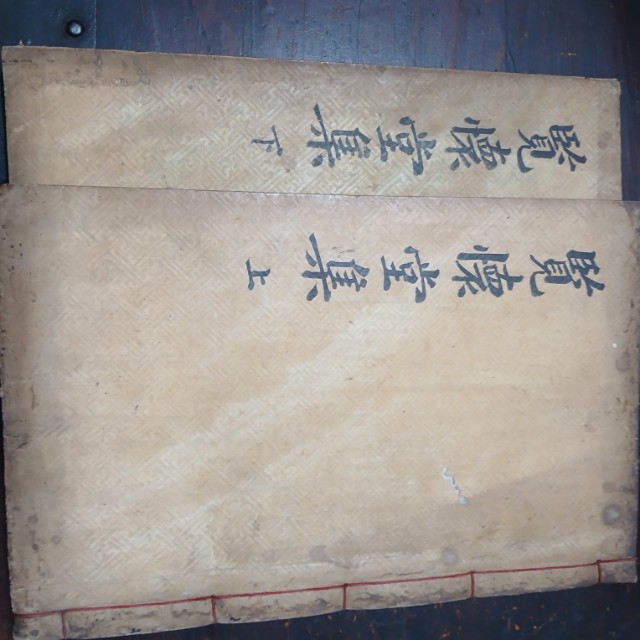 覽懷堂集 上
覽懷堂集 下